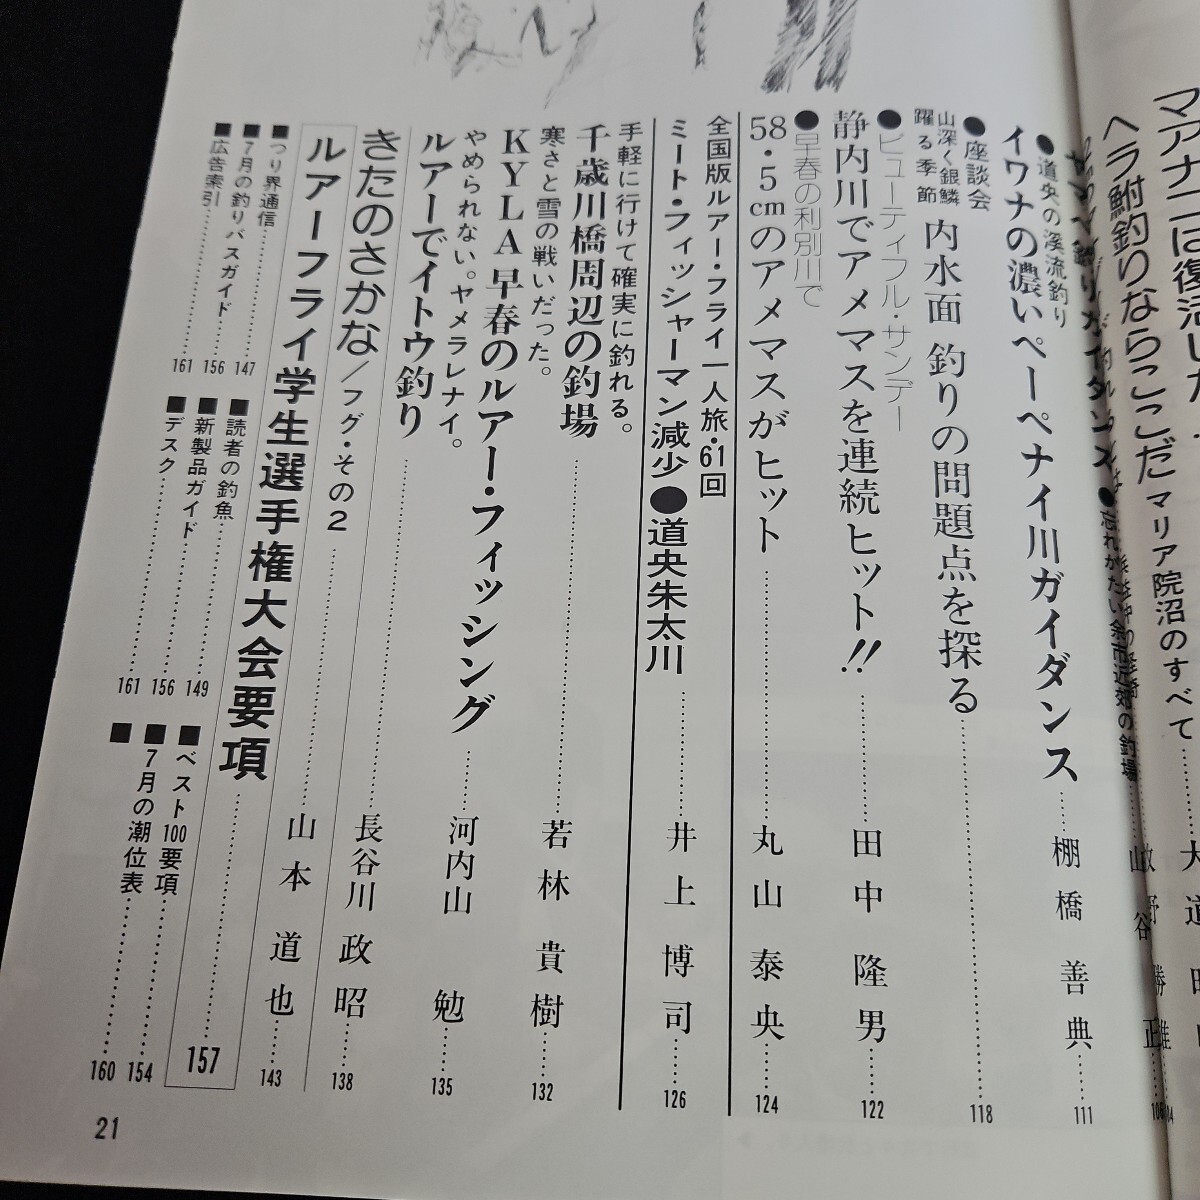 マリア院沼のすべて
ヘラ鮒釣りならここだ
●忘れがたい余市近郊の釣場
●道央の渓流釣り
イワナの濃いペーペナイ川ガイダンス
棚橋善典
111
●座談会
山深く銀鱗
躍る季節
内水面 釣りの問題点を探る
118
●ビューティフル・サンデー
静内川でアメマスを連続ヒット!!
田中隆男
122
●早春の利別川で
58・5cmのアメマスがヒット
丸山泰央
124
全国版ルアー・フライ一人旅・61回
ミート・フィッシャーマン減少●道央朱太川
井上博司
126
手軽に行けて確実に釣れる。
千歳川橋周辺の釣場
若林貴樹
132
寒さと雪の戦いだった。
KYLA早春のルアー・フィッシング
河内山勉
135
やめられない。ヤメラレナイ。
ルアーでイトウ釣り
長谷川政昭
138
きたのさかな/フグ・その2
山本道也
143
ルアーフライ学生選手権大会要項
157
■つり界通信
147
■7月の釣りバスガイド
156
■広告索引
161
■読者の釣魚
149
■新製品ガイド
156
■デスク
161
■ベスト100要項
154
■7月の潮位表
160
■
21